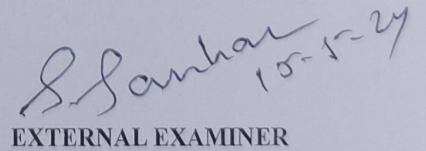 S. Sankar
15-5-24
EXTERNAL EXAMINER